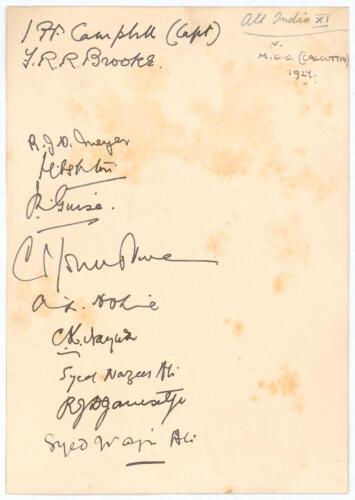 All India XI
v.
M.C.C. (CALCUTTA)
1927.
Campbell (Capt)
F.R.R. Brooke.
R.J.O. Meyer
H. Ashton
J. Guise.
A.L. Hosie
C.K. Nayudu
Syed Nazeer Ali
R.J.D. Jamsetji
Syed Wazir Ali